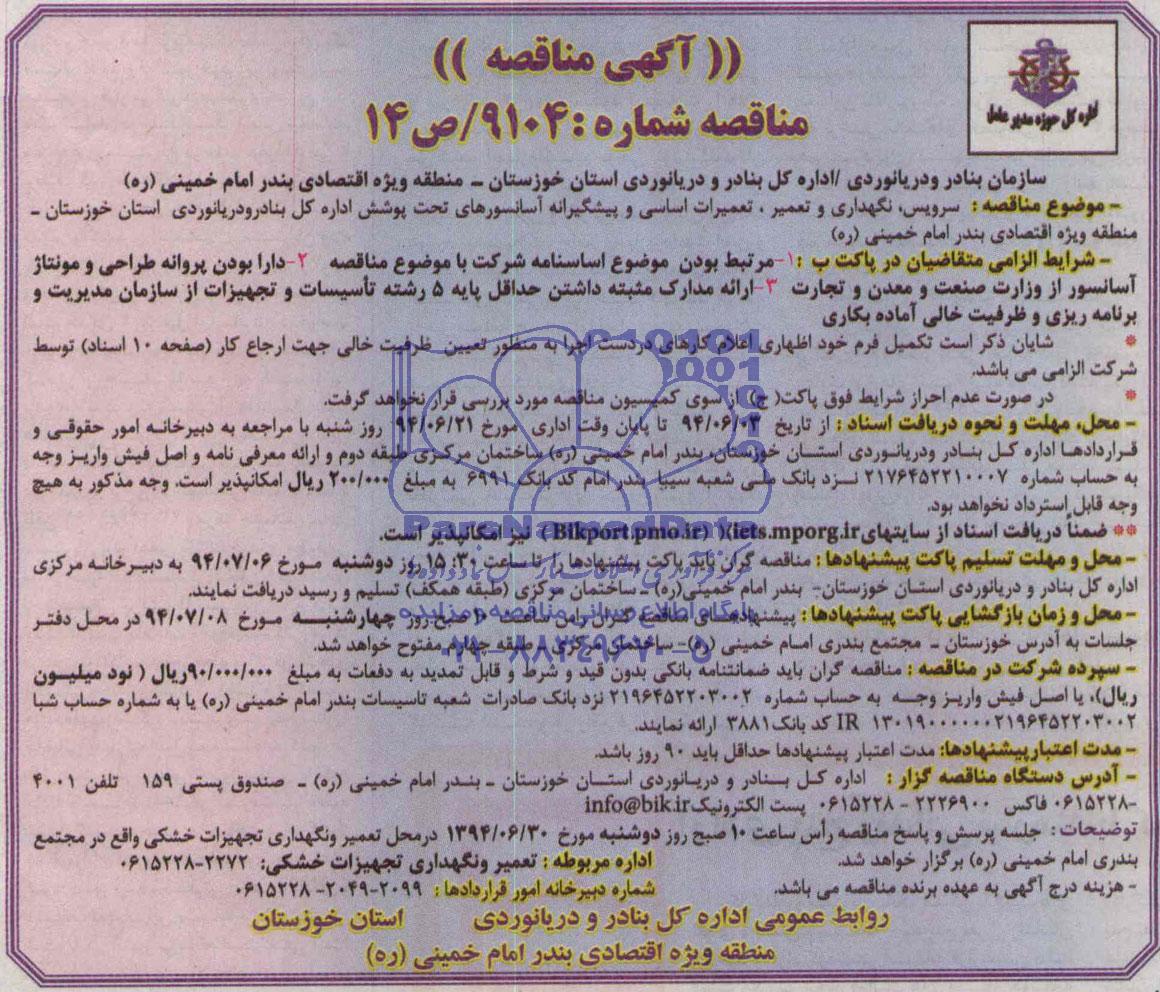 اداره کل حوزه مدیر عامل
(( آگهی مناقصه ))
مناقصه شماره : ۹۱۰۴/ص۱۴
سازمان بنادر ودریانوردی /اداره کل بنادر و دریانوردی استان خوزستان ـ منطقه ویژه اقتصادی بندر امام خمینی (ره)
- موضوع مناقصه : سرویس، نگهداری و تعمیر ، تعمیرات اساسی و پیشگیرانه آسانسورهای تحت پوشش اداره کل بنادرودریانوردی استان خوزستان ـ
منطقه ویژه اقتصادی بندر امام خمینی (ره)
- شرایط الزامی متقاضیان در پاکت ب : ۱-مرتبط بودن موضوع اساسنامه شرکت با موضوع مناقصه ۲-دارا بودن پروانه طراحی و مونتاژ
آسانسور از وزارت صنعت و معدن و تجارت ۳-ارائه مدارک مثبته داشتن حداقل پایه ۵ رشته تأسیسات و تجهیزات از سازمان مدیریت و
برنامه ریزی و ظرفیت خالی آماده بکاری
* شایان ذکر است تکمیل فرم خود اظهاری اعلام کارهای دردست اجرا به منظور تعیین ظرفیت خالی جهت ارجاع کار (صفحه ۱۰ اسناد) توسط
شرکت الزامی می باشد.
* در صورت عدم احراز شرایط فوق پاکت( ج) از سوی کمیسیون مناقصه مورد بررسی قرار نخواهد گرفت.
- محل، مهلت و نحوه دریافت اسناد : از تاریخ ۹۴/۰۶/۰۳ تا پایان وقت اداری مورخ ۹۴/۰۶/۲۱ روز شنبه با مراجعه به دبیرخانه امور حقوقی و
قراردادها اداره کل بنادر ودریانوردی استان خوزستان، بندر امام خمینی (ره) ساختمان مرکزی طبقه دوم و ارائه معرفی نامه و اصل فیش واریز وجه
به حساب شماره ۲۱۷۶۴۵۲۲۱۰۰۰۷ نزد بانک ملی شعبه سیبا بندر امام کد بانک ۶۹۹۱ به مبلغ ۲۰۰/۰۰۰ ریال امکانپذیر است. وجه مذکور به هیچ
وجه قابل استرداد نخواهد بود.
** ضمناً دریافت اسناد از سایتهای(iets.mporg.ir) (Bikport.pmo.ir) نیز امکانپذیر است.
- محل و مهلت تسلیم پاکت پیشنهادها : مناقصه گران باید پاکت پیشنهادها را تا ساعت ۱۵:۳۰ روز دوشنبه مورخ ۹۴/۰۷/۰۶ به دبیرخانه مرکزی
اداره کل بنادر و دریانوردی استان خوزستان- بندر امام خمینی(ره) ـ ساختمان مرکزی (طبقه همکف) تسلیم و رسید دریافت نمایند.
- محل و زمان بازگشایی پاکت پیشنهادها : پیشنهادهای مناقصه گران راس ساعت ۱۰ صبح روز چهارشنبه مورخ ۹۴/۰۷/۰۸ در محل دفتر
جلسات به آدرس خوزستان ـ مجتمع بندری امام خمینی (ره)- ساختمان مرکزی - طبقه چهارم مفتوح خواهد شد.
- سپرده شرکت در مناقصه : مناقصه گران باید ضمانتنامه بانکی بدون قید و شرط و قابل تمدید به دفعات به مبلغ ۹۰/۰۰۰/۰۰۰ریال ( نود میلیون
ریال)، یا اصل فیش واریز وجه به حساب شماره ۲۱۹۶۴۵۲۲۰۳۰۰۲ نزد بانک صادرات شعبه تاسیسات بندر امام خمینی (ره) یا به شماره حساب شبا
IR ۱۳۰۱۹۰۰۰۰۰۰۰۲۱۹۶۴۵۲۲۰۳۰۰۲ کد بانک۳۸۸۱ ارائه نمایند.
- مدت اعتبارپیشنهادها: مدت اعتبار پیشنهادها حداقل باید ۹۰ روز باشد.
- آدرس دستگاه مناقصه گزار : اداره کل بنادر و دریانوردی استان خوزستان ـ بندر امام خمینی (ره) ـ صندوق پستی ۱۵۹ تلفن ۴۰۰۱
-۰۶۱۵۲۲۸ فاکس ۲۲۲۶۹۰۰ - ۰۶۱۵۲۲۸ پست الکترونیکinfo@bik.ir
توضیحات : جلسه پرسش و پاسخ مناقصه رأس ساعت ۱۰ صبح روز دوشنبه مورخ ۱۳۹۴/۰۶/۳۰ درمحل تعمیر ونگهداری تجهیزات خشکی واقع در مجتمع
بندری امام خمینی (ره) برگزار خواهد شد.
اداره مربوطه : تعمیر ونگهداری تجهیزات خشکی: ۲۲۷۲-۰۶۱۵۲۲۸
- هزینه درج آگهی به عهده برنده مناقصه می باشد.
شماره دبیرخانه امور قراردادها : ۲۰۹۹-۲۰۴۹- ۰۶۱۵۲۲۸
روابط عمومی اداره کل بنادر و دریانوردی استان خوزستان
منطقه ویژه اقتصادی بندر امام خمینی (ره)
ParsNamadData
پایگاه اطلاع رسانی مناقصه و مزایده
۰۲۱-۸۸۳۴۹۶۷۰-۵